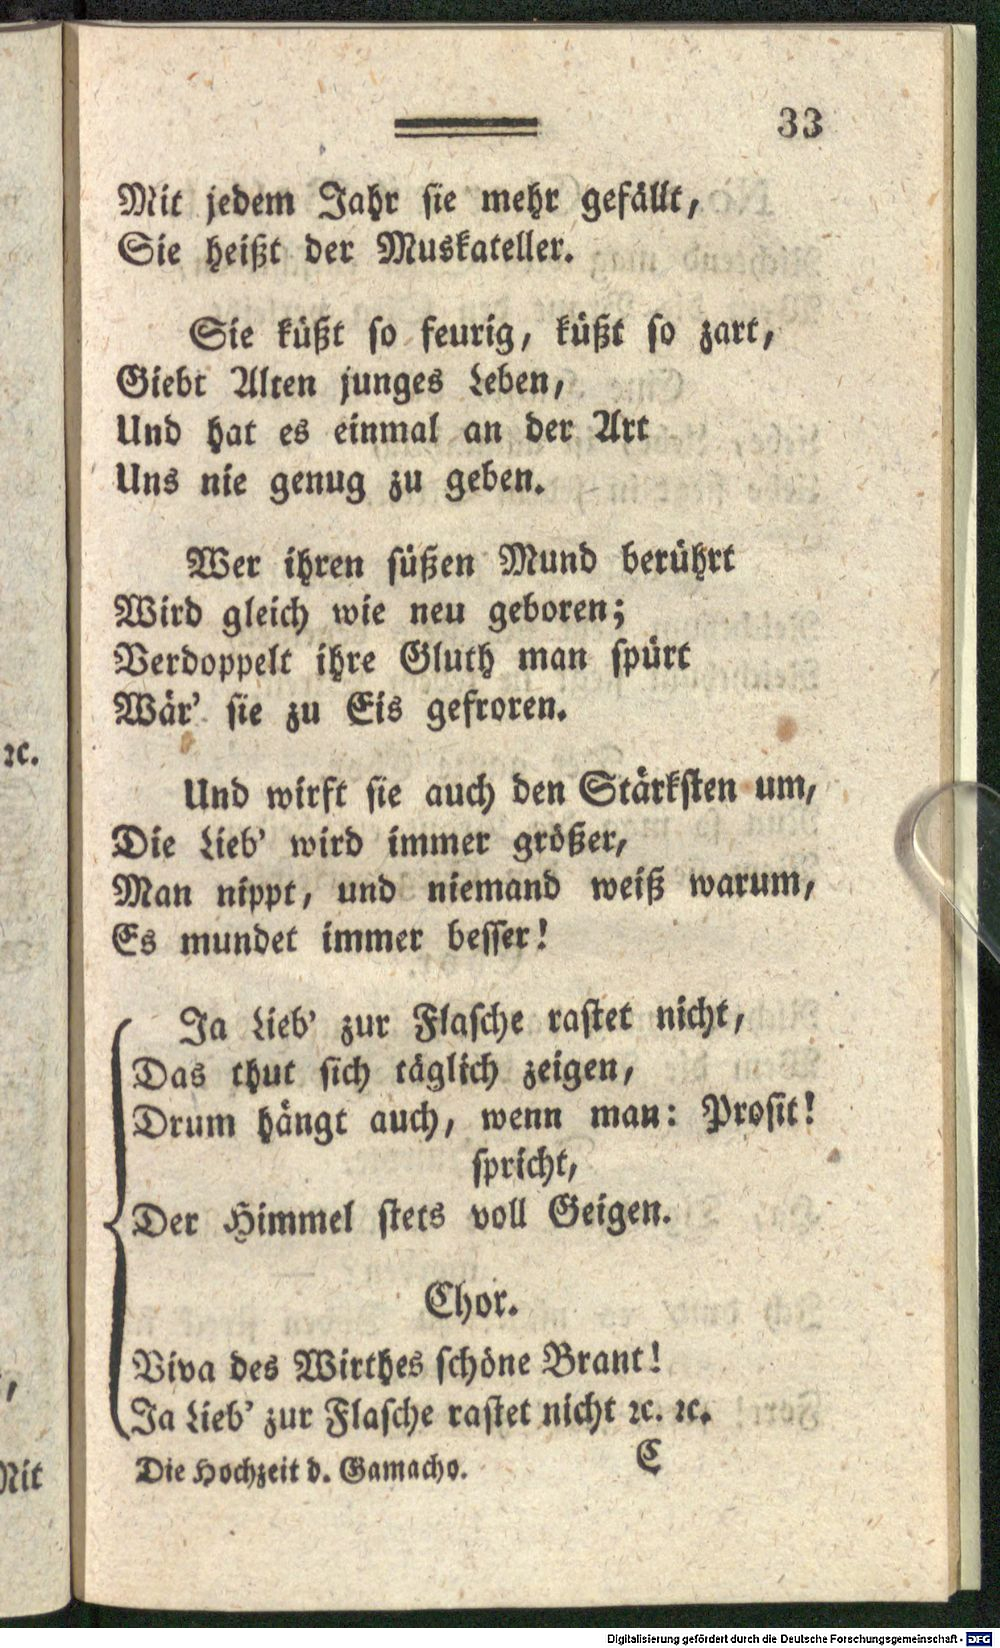 33
Mit jedem Jahr sie mehr gefällt,
Sie heißt der Muskateller.
Sie küßt so feurig, küßt so zart,
Giebt Alten junges Leben,
Und hat es einmal an der Art
Uns nie genug zu geben.
Wer ihren süßen Mund berührt
Wird gleich wie neu geboren;
Verdoppelt ihre Gluth man spürt
Wär' sie zu Eis gefroren.
Und wirft sie auch den Stärksten um,
Die Lieb' wird immer größer,
Man nippt, und niemand weiß warum,
Es mundet immer besser!
Ja Lieb' zur Flasche rastet nicht,
Das thut sich täglich zeigen,
Drum hängt auch, wenn man: Prosit!
spricht,
Der Himmel stets voll Geigen.
Chor.
Viva des Wirthes schöne Brant!
Ja Lieb' zur Flasche rastet nicht ꝛc. ꝛc.
Die Hochzeit d. Gamacho. C
ꝛc.
Mit
Digitalisierung gefördert durch die Deutsche Forschungsgemeinschaft - DFG